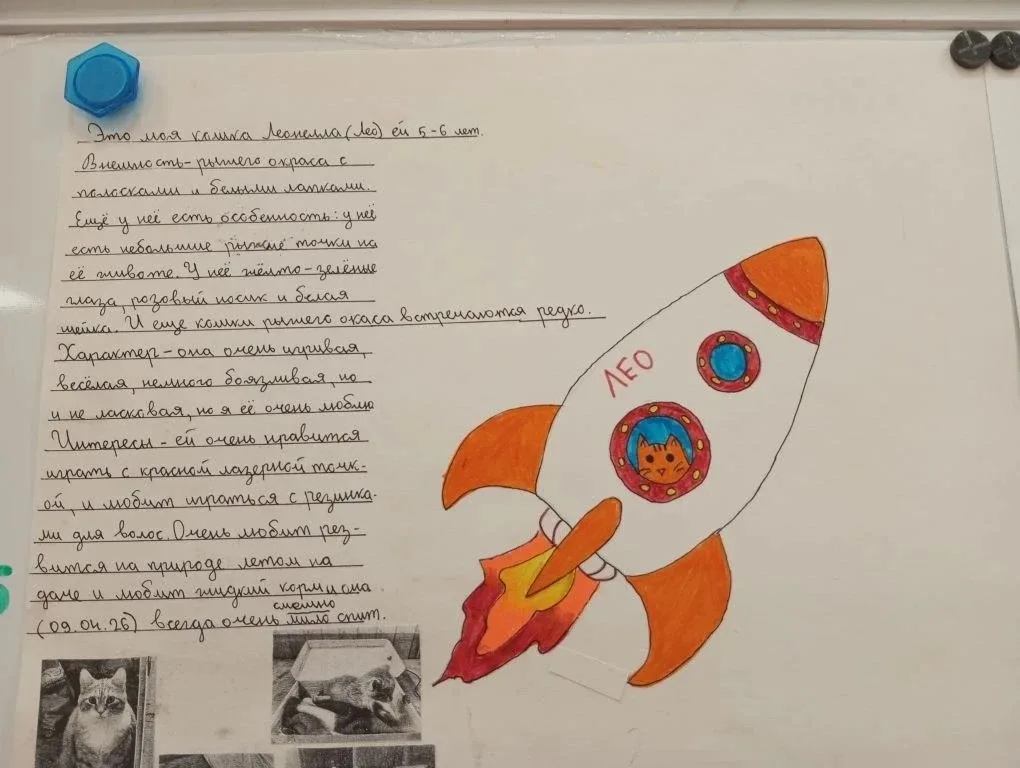 Это моя кошка Леонелла (Лео) ей 5-6 лет.
Внешность - рыжего окраса с
полосками и белыми лапками.
Ещё у неё есть особенность: у неё
есть небольшие рыжие точки на
её животе. У неё жёлто-зелёные
глаза, розовый носик и белая
шейка. И еще кошки рыжего окаса встречаются редко.
Характер - она очень игривая,
весёлая, немного боязливая, но
и не ласковая, но я её очень люблю
Интересы - ей очень нравится
играть с красной лазерной точк-
ой, и любит играться с резинка-
ми для волос. Очень любит рез-
вится на природе летом на
даче и любит жидкий корм и она
смешно
(09.04.26) всегда очень мило спит.
ЛЕО